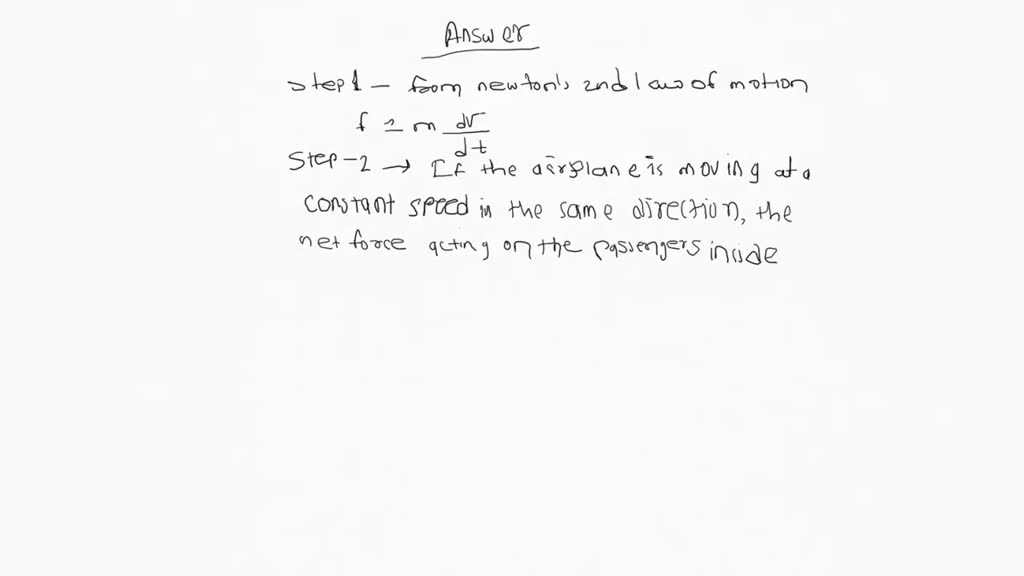 Answer
Step1 – from newton's 2nd law of motion
f = m dv/dt
Step-2 → If the airplane is moving at a
constant speed in the same direction, the
net force acting on the passengers inside